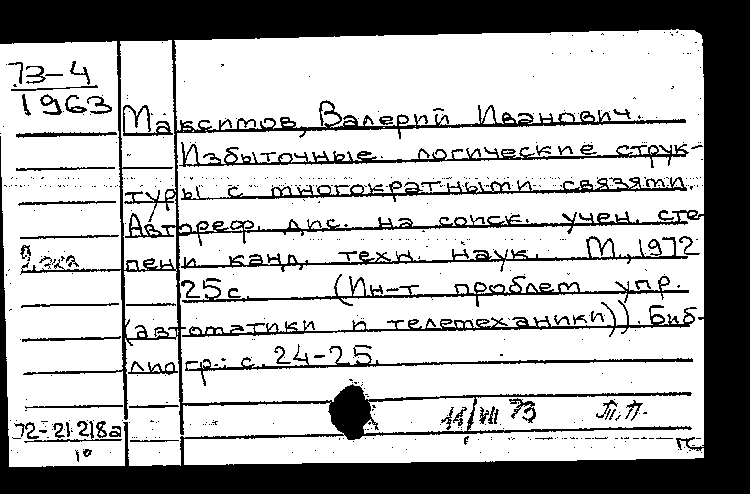 73-4
1963
Максимов, Валерий Иванович.
Избыточные логические струк-
туры с многократными связями.
Автореф. дис. на соиск. учен. сте-
2 экз
пени канд. техн. наук. М., 1972
25с. (Ин-т проблем упр.
(автоматики и телемеханики)). Биб-
лиогр.: с. 24-25.
11/VII 73 П.П.
72-21218а
10